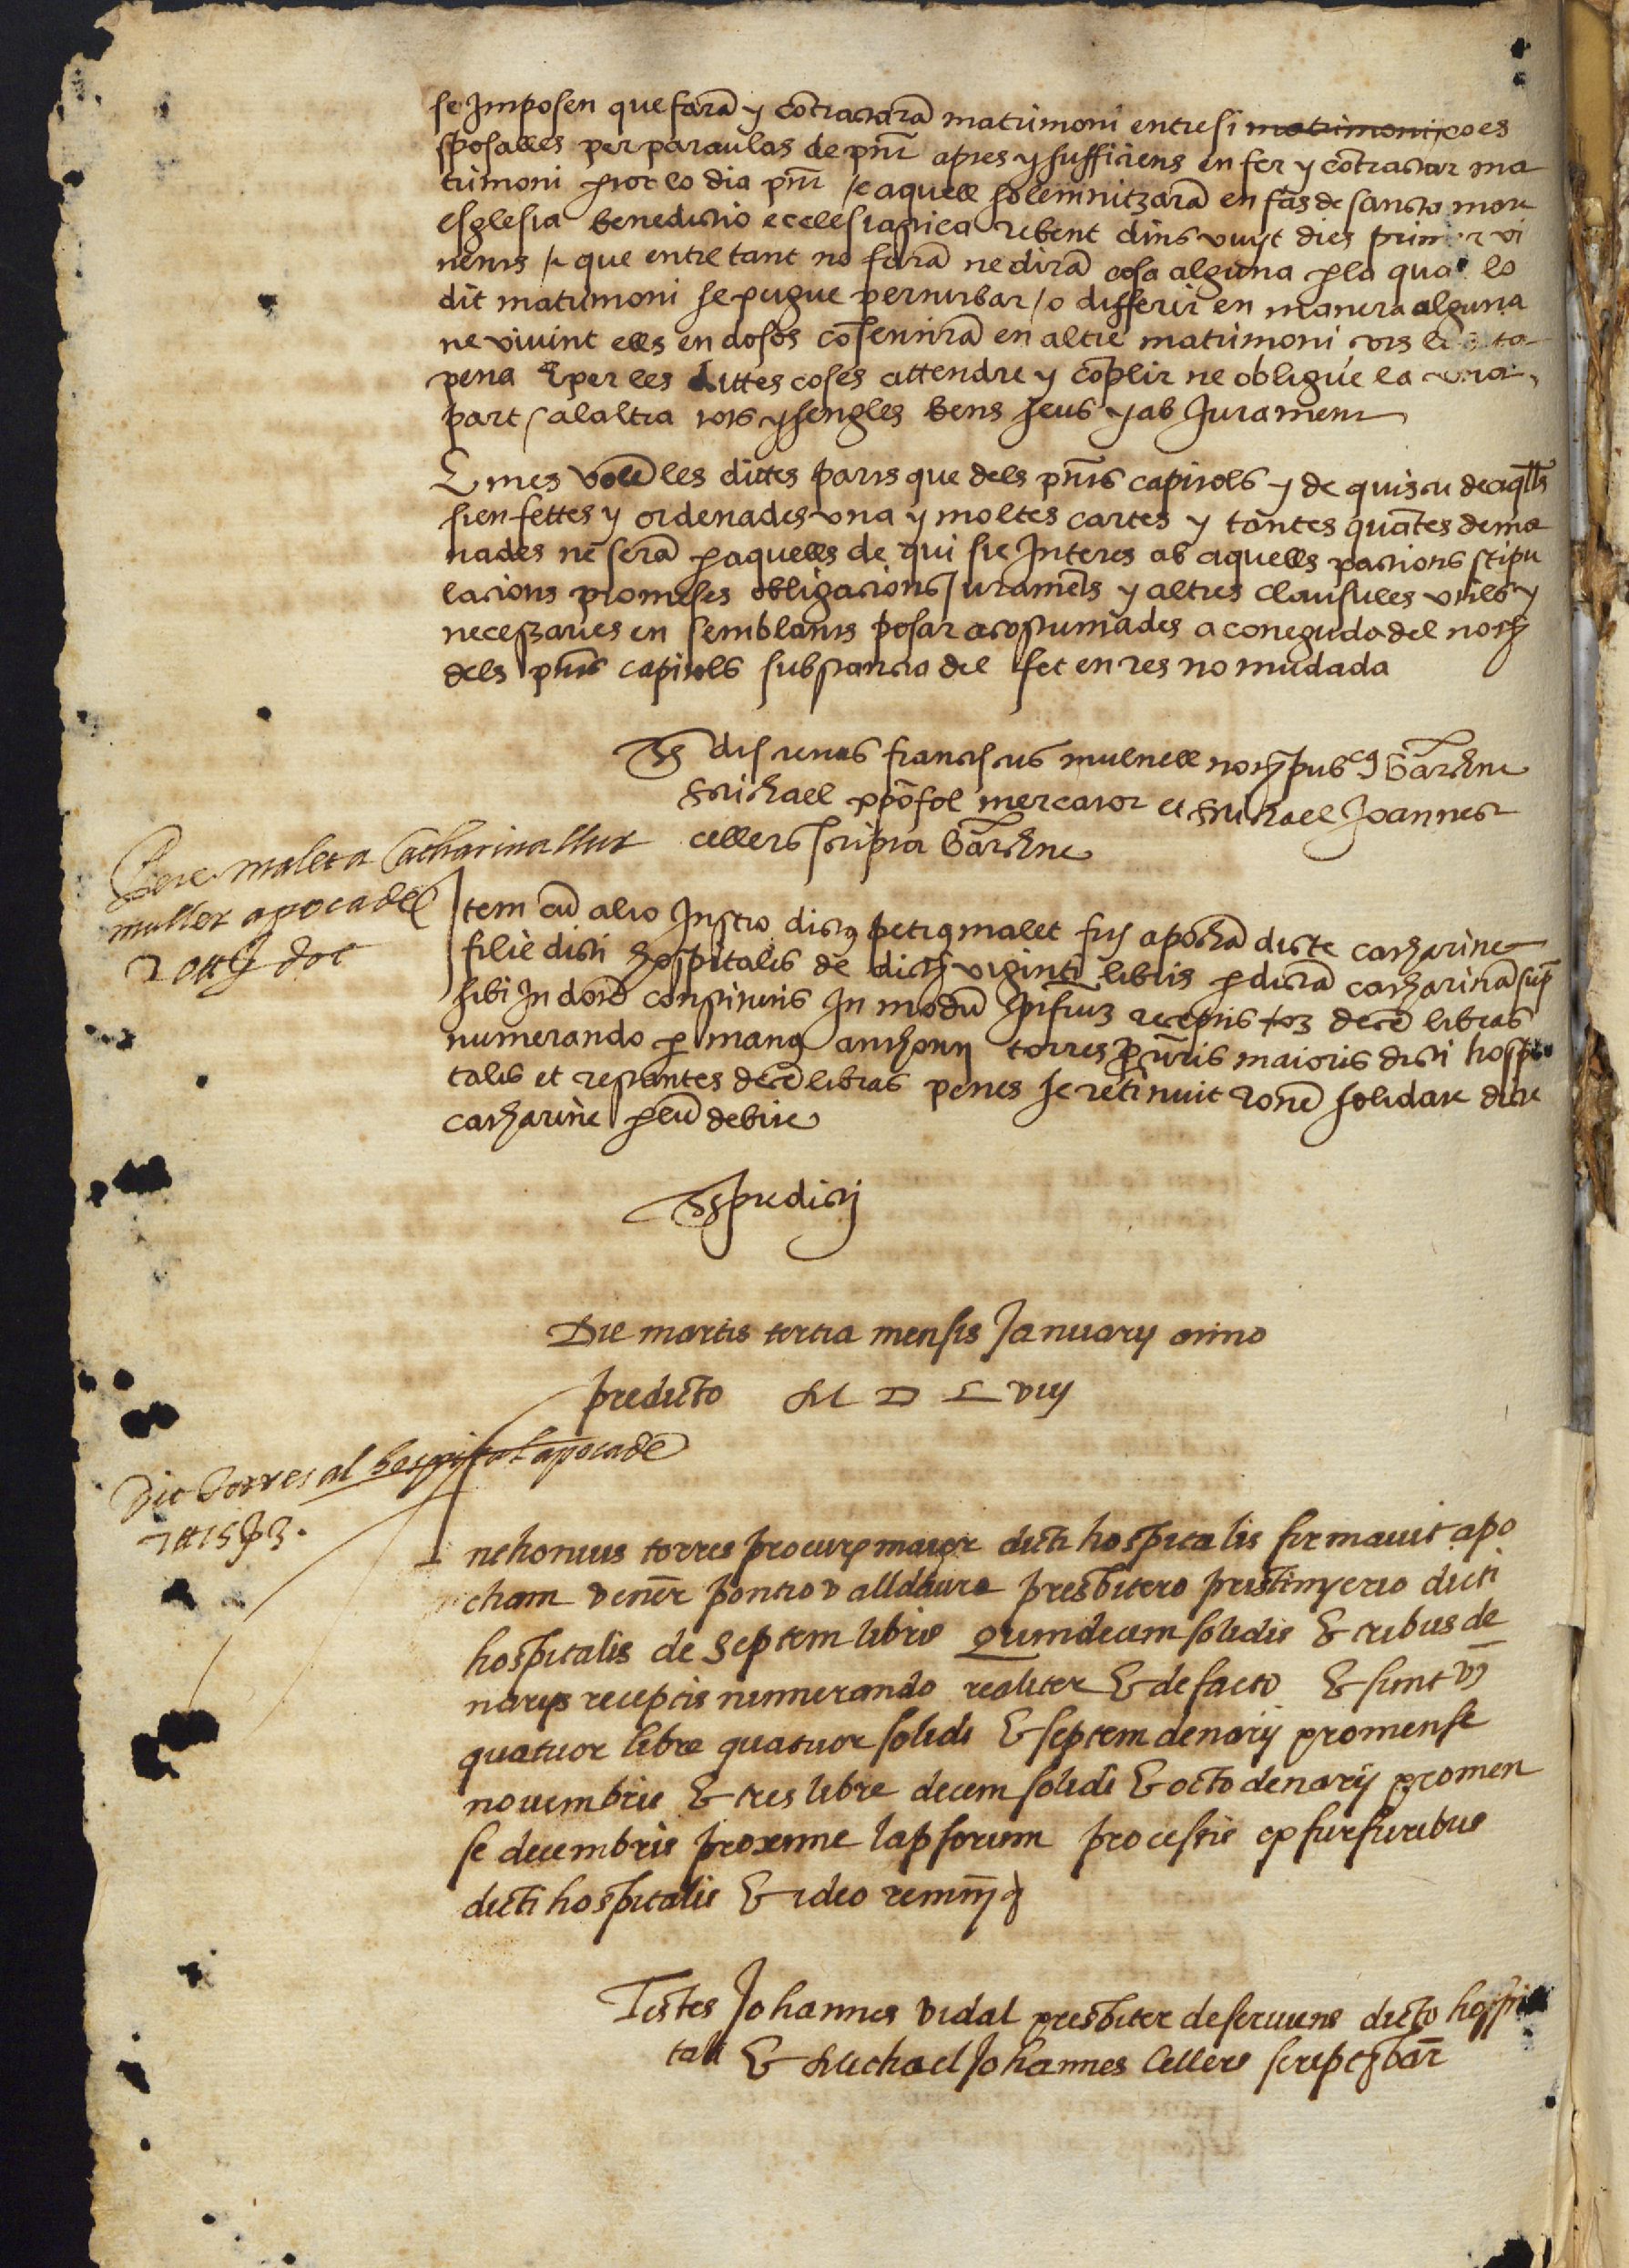 se Imposen que farā y cōtractarā matrimoni entresi matrimoni coes
sposalles per paraulas de pn̄t apres y sufficiens en fer y cōtractar ma
trimoni p tot lo dia pn̄t /e aquell solemnitzarā en fas de sancta mare
esglesia benedictio ecclesiastica rebent dins vuyt dies primer vi
nents /e que entretant no farā ne dirā cosa alguna p la qual lo
dit matrimoni se pugue perturbar /o differir en manera alguna
ne vivint ells en dosos cōsentirā en altre matrimoni sots la dita
pena E per les dittes coses attendre y cōplir ne obligue la una
part / alaltra tots y sengles bens seus y ab Jurament
E mes volē les dittes parts que dels pn̄ts capitols y de quiscu de aq̄lls
sien fettes y ordenades una y moltes cartes y tantes quātes dema
nades ne serā p aquells de qui sie Interes ab aquells pactions stipu
lacions promeses obligacions Juramēts y altres clausules utils y
necessaries en semblants posar acostumades a coneguda del not
dels pn̄ts capitols substancia del fet en res no mudada
Ts discretus franciscus mulnell not pubcus Barchne
Michael ppōsol mercator et Michael Joannes
cellers scriptor Barchne
Pere malet a Catharina
muller apoca de
20 ₶ J dot
Item cū alio Instro dictus petrus malet fuj apochā dicte catharine
filie dicti hospitalis de dictis viginti libris p dictā catharinā sup
sibi In dotē constitutis In modū Infrum receptis decē libras
numerando p manus anthonij torres p̄curis maioris dicti hospi
talis et restantes decē libras penes se retinuit ronē solidare dicte
catharine p eū debite
Ts predictj
Die martis tertia mensis Januarij anno
predicto M D L viij
Dit Torres al hospital apoca de
7 ₶ 15 ẞ 3.
Anthonius torres procurr maior dicti hospitalis firmavit apo
cham venēr pontio valldaura presbitero pristinyerio dicti
hospitalis de Septem libris Quindecim solidis & tribus de
narijs receptis numerando realiter & de facto & sunt
quatuor libre quatuor solidi & septem denarij pro mense
novembris & tres libre decem solidi & octo denarij pro men
se decembris proxime lapsorum processis ex furfuribus
dicti hospitalis & ideo
Testes Johannes vidal presbiter deserviens dicto hospi
tali & Michael Johannes Cellers script bār